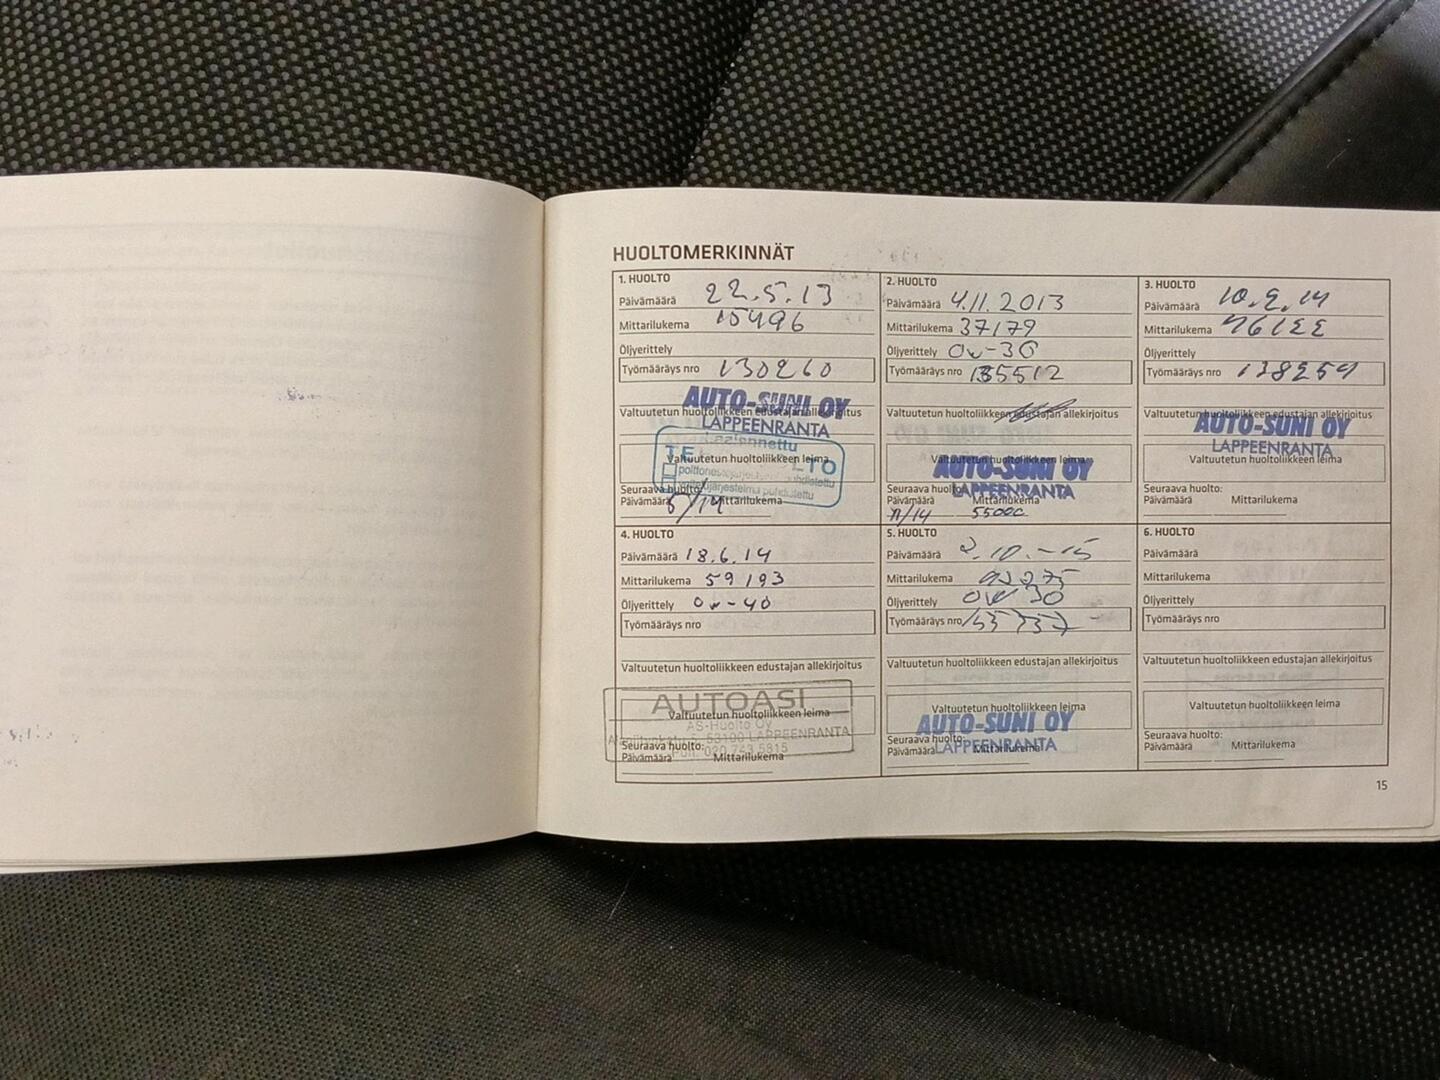 HUOLTOMERKINNÄT
1. HUOLTO
Päivämäärä 22.5.13
Mittarilukema 15496
Öljyerittely
Työmääräys nro 130260
AUTO-SUNI OY
Valtuutetun huoltoliikkeen edustajan allekirjoitus
LAPPEENRANTA
Valtuutetun huoltoliikkeen leima
Seuraava huolto:
Päivämäärä 5/14 Mittarilukema
2. HUOLTO
Päivämäärä 4.11.2013
Mittarilukema 37179
Öljyerittely 0w-30
Työmääräys nro 135512
Valtuutetun huoltoliikkeen edustajan allekirjoitus
Valtuutetun huoltoliikkeen leima
AUTO-SUNI OY
LAPPEENRANTA
Seuraava huolto:
Päivämäärä Mittarilukema
11/14 55000
3. HUOLTO
Päivämäärä
Mittarilukema
Öljyerittely
Työmääräys nro 138254
Valtuutetun huoltoliikkeen edustajan allekirjoitus
AUTO-SUNI OY
LAPPEENRANTA
Valtuutetun huoltoliikkeen leima
Seuraava huolto:
Päivämäärä Mittarilukema
4. HUOLTO
Päivämäärä 18.6.14
Mittarilukema 59193
Öljyerittely 0w-40
Työmääräys nro
Valtuutetun huoltoliikkeen edustajan allekirjoitus
AUTOASI
Valtuutetun huoltoliikkeen leima
AS-Huolto Oy
53100 LAPPEENRANTA
Puh. 020 743 5815
Seuraava huolto:
Päivämäärä Mittarilukema
5. HUOLTO
Päivämäärä 2.10.-15
Mittarilukema
Öljyerittely 0W30
Työmääräys nro
Valtuutetun huoltoliikkeen edustajan allekirjoitus
Valtuutetun huoltoliikkeen leima
AUTO-SUNI OY
LAPPEENRANTA
Seuraava huolto:
Päivämäärä Mittarilukema
6. HUOLTO
Päivämäärä
Mittarilukema
Öljyerittely
Työmääräys nro
Valtuutetun huoltoliikkeen edustajan allekirjoitus
Valtuutetun huoltoliikkeen leima
Seuraava huolto:
Päivämäärä Mittarilukema
15